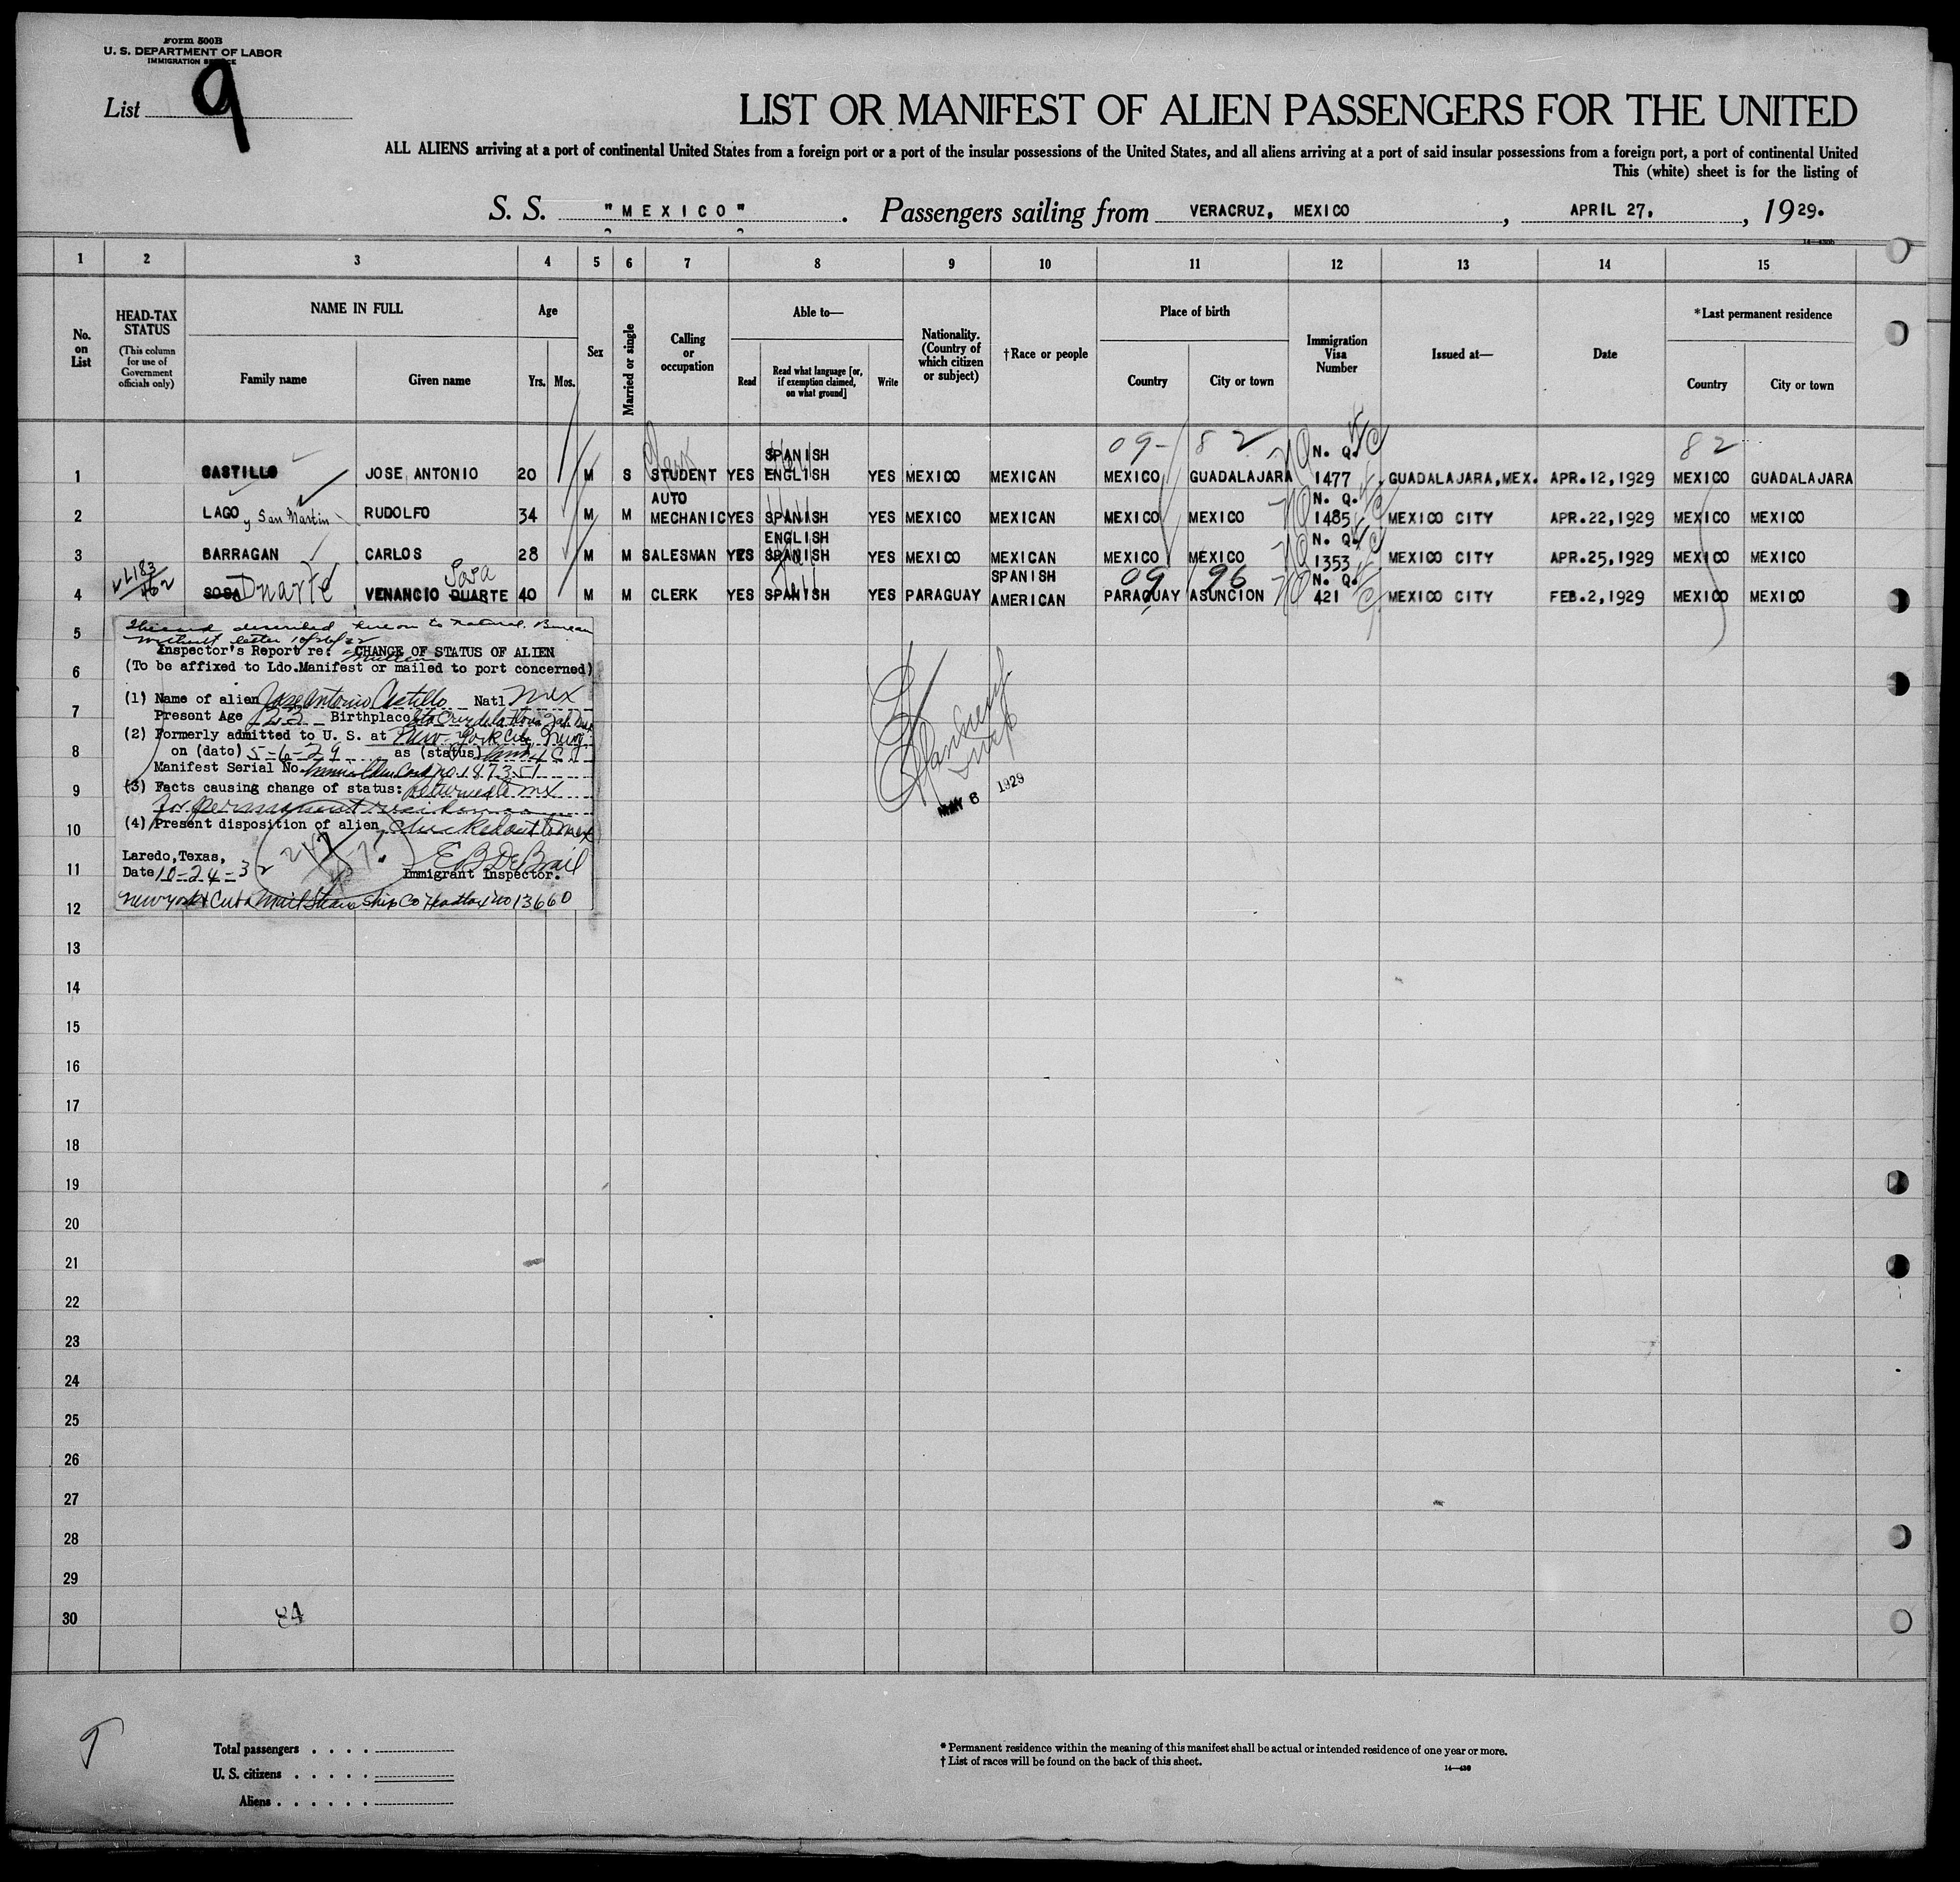 Form 500B
U. S. DEPARTMENT OF LABOR
IMMIGRATION SERVICE
List 9
LIST OR MANIFEST OF ALIEN PASSENGERS FOR THE UNITED
ALL ALIENS arriving at a port of continental United States from a foreign port or a port of the insular possessions of the United States, and all aliens arriving at a port of said insular possessions from a foreign port, a port of continental United
This (white) sheet is for the listing of
S. S. "MEXICO". Passengers sailing from VERACRUZ, MEXICO, APRIL 27, 1929.
1 2 3 4 5 6 7 8 9 10 11 12 13 14 15
No. on List
HEAD-TAX STATUS
(This column for use of Government officials only)
NAME IN FULL
Family name Given name
Age
Yrs. Mos.
Sex
Married or single
Calling or occupation
Able to—
Read Read what language [or, if exemption claimed, on what ground] Write
Nationality. (Country of which citizen or subject)
†Race or people
Place of birth
Country City or town
Immigration Visa Number
Issued at—
Date
*Last permanent residence
Country City or town
09- 82 82
Clerk SPANISH N. Q.
1 CASTILLO JOSE ANTONIO 20 M S STUDENT YES ENGLISH YES MEXICO MEXICAN MEXICO GUADALAJARA 1477 GUADALAJARA, MEX. APR.12,1929 MEXICO GUADALAJARA
AUTO N. Q.
2 LAGO y San Martin RUDOLFO 34 M M MECHANIC YES SPANISH YES MEXICO MEXICAN MEXICO MEXICO 1485 MEXICO CITY APR.22,1929 MEXICO MEXICO
ENGLISH N. Q.
3 BARRAGAN CARLOS 28 M M SALESMAN YES SPANISH YES MEXICO MEXICAN MEXICO MEXICO 1353 MEXICO CITY APR.25,1929 MEXICO MEXICO
Sosa SPANISH 09 96 N. Q.
4 SOSA Duarte VENANCIO DUARTE 40 M M CLERK YES SPANISH YES PARAGUAY AMERICAN PARAGUAY ASUNCION 421 MEXICO CITY FEB.2,1929 MEXICO MEXICO
described hereon to Natural. Bureau
without letter 10/26/32
Inspector's Report re: CHANGE OF STATUS OF ALIEN
(To be affixed to Ldo.Manifest or mailed to port concerned)
(1) Name of alien Jose Antonio Castillo Natl Mex
Present Age 23 Birthplace
(2) Formerly admitted to U. S. at New York City,
on (date) 5-6-29 as (status)
Manifest Serial No. 187351
(3) Facts causing change of status: Returned to Mex
for permanent residence
(4) Present disposition of alien checked out to Mex
Laredo, Texas,
Date 10-24-32 Immigrant Inspector.
New York & Cuba Mail Steam Ship Co Headtax no 13660
MAY 6 1929
5
6
7
8
9
10
11
12
13
14
15
16
17
18
19
20
21
22
23
24
25
26
27
28
29
30
84
9
Total passengers . . . .
U. S. citizens . . . . .
Aliens . . . . . .
* Permanent residence within the meaning of this manifest shall be actual or intended residence of one year or more.
† List of races will be found on the back of this sheet.
14—430